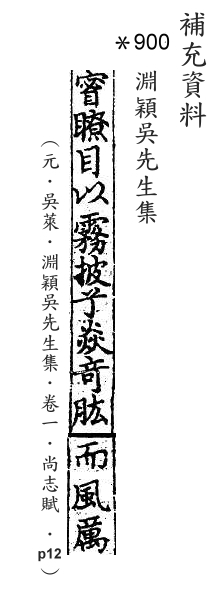 補充資料
＊900 淵穎吳先生集
窅瞭目以霧披兮焱竒肱而風厲
（元．吳萊．淵穎吳先生集．卷一．尚志賦．p12）